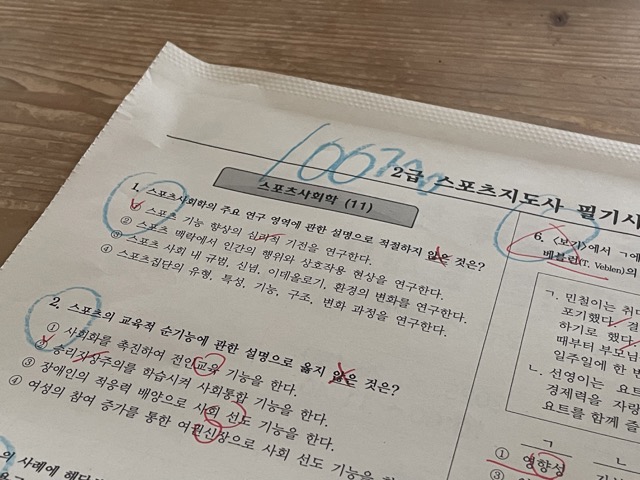 100점
2급 스포츠지도사 필기시
스포츠사회학 (11)
1. 스포츠사회학의 주요 연구 영역에 관한 설명으로 적절하지 않은 것은?
① 스포츠 기능 향상의 심리적 기전을 연구한다.
② 스포츠 맥락에서 인간의 행위와 상호작용 현상을 연구한다.
③ 스포츠 사회 내 규범, 신념, 이데올로기, 환경의 변화를 연구한다.
④ 스포츠집단의 유형, 특성, 기능, 구조, 변화 과정을 연구한다.
2. 스포츠의 교육적 순기능에 관한 설명으로 옳지 않은 것은?
① 사회화를 촉진하여 전인교육 기능을 한다.
② 승리지상주의를 학습시켜 사회통합 기능을 한다.
③ 장애인의 적응력 배양으로 사회 선도 기능을 한다.
④ 여성의 참여 증가를 통한 여권신장으로 사회 선도 기능을 한
의 사례에 해당
6. <보기>에서 ㄱ에
베블런(T. Veblen)의
ㄱ. 민철이는 취미
포기했다.
하기로 했다.
때부터 부모님
일주일에 한 번
ㄴ. 선영이는 요트
경제력을 자랑
요트를 함께 즐
ㄱ ㄴ
① 영향성
③